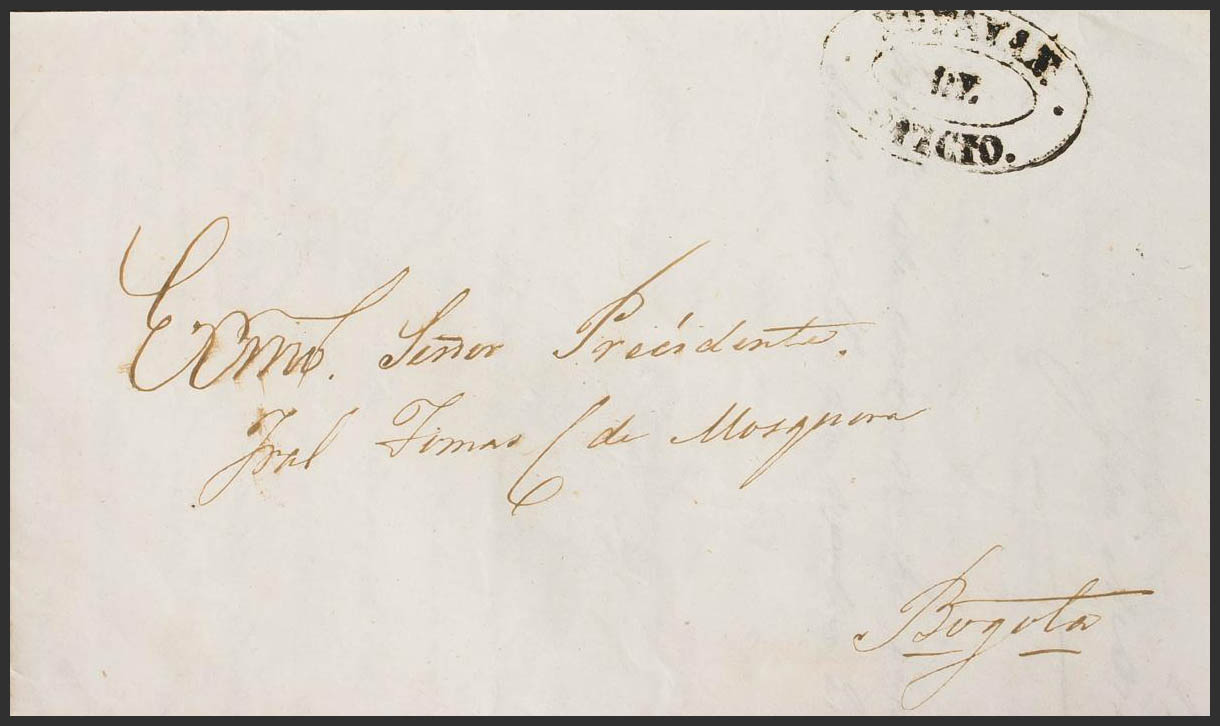 POPAYAN.
DE
OFICIO.
Exmo. Señor Preésidente.
Jral Tomas C de Mosquera
Bogota